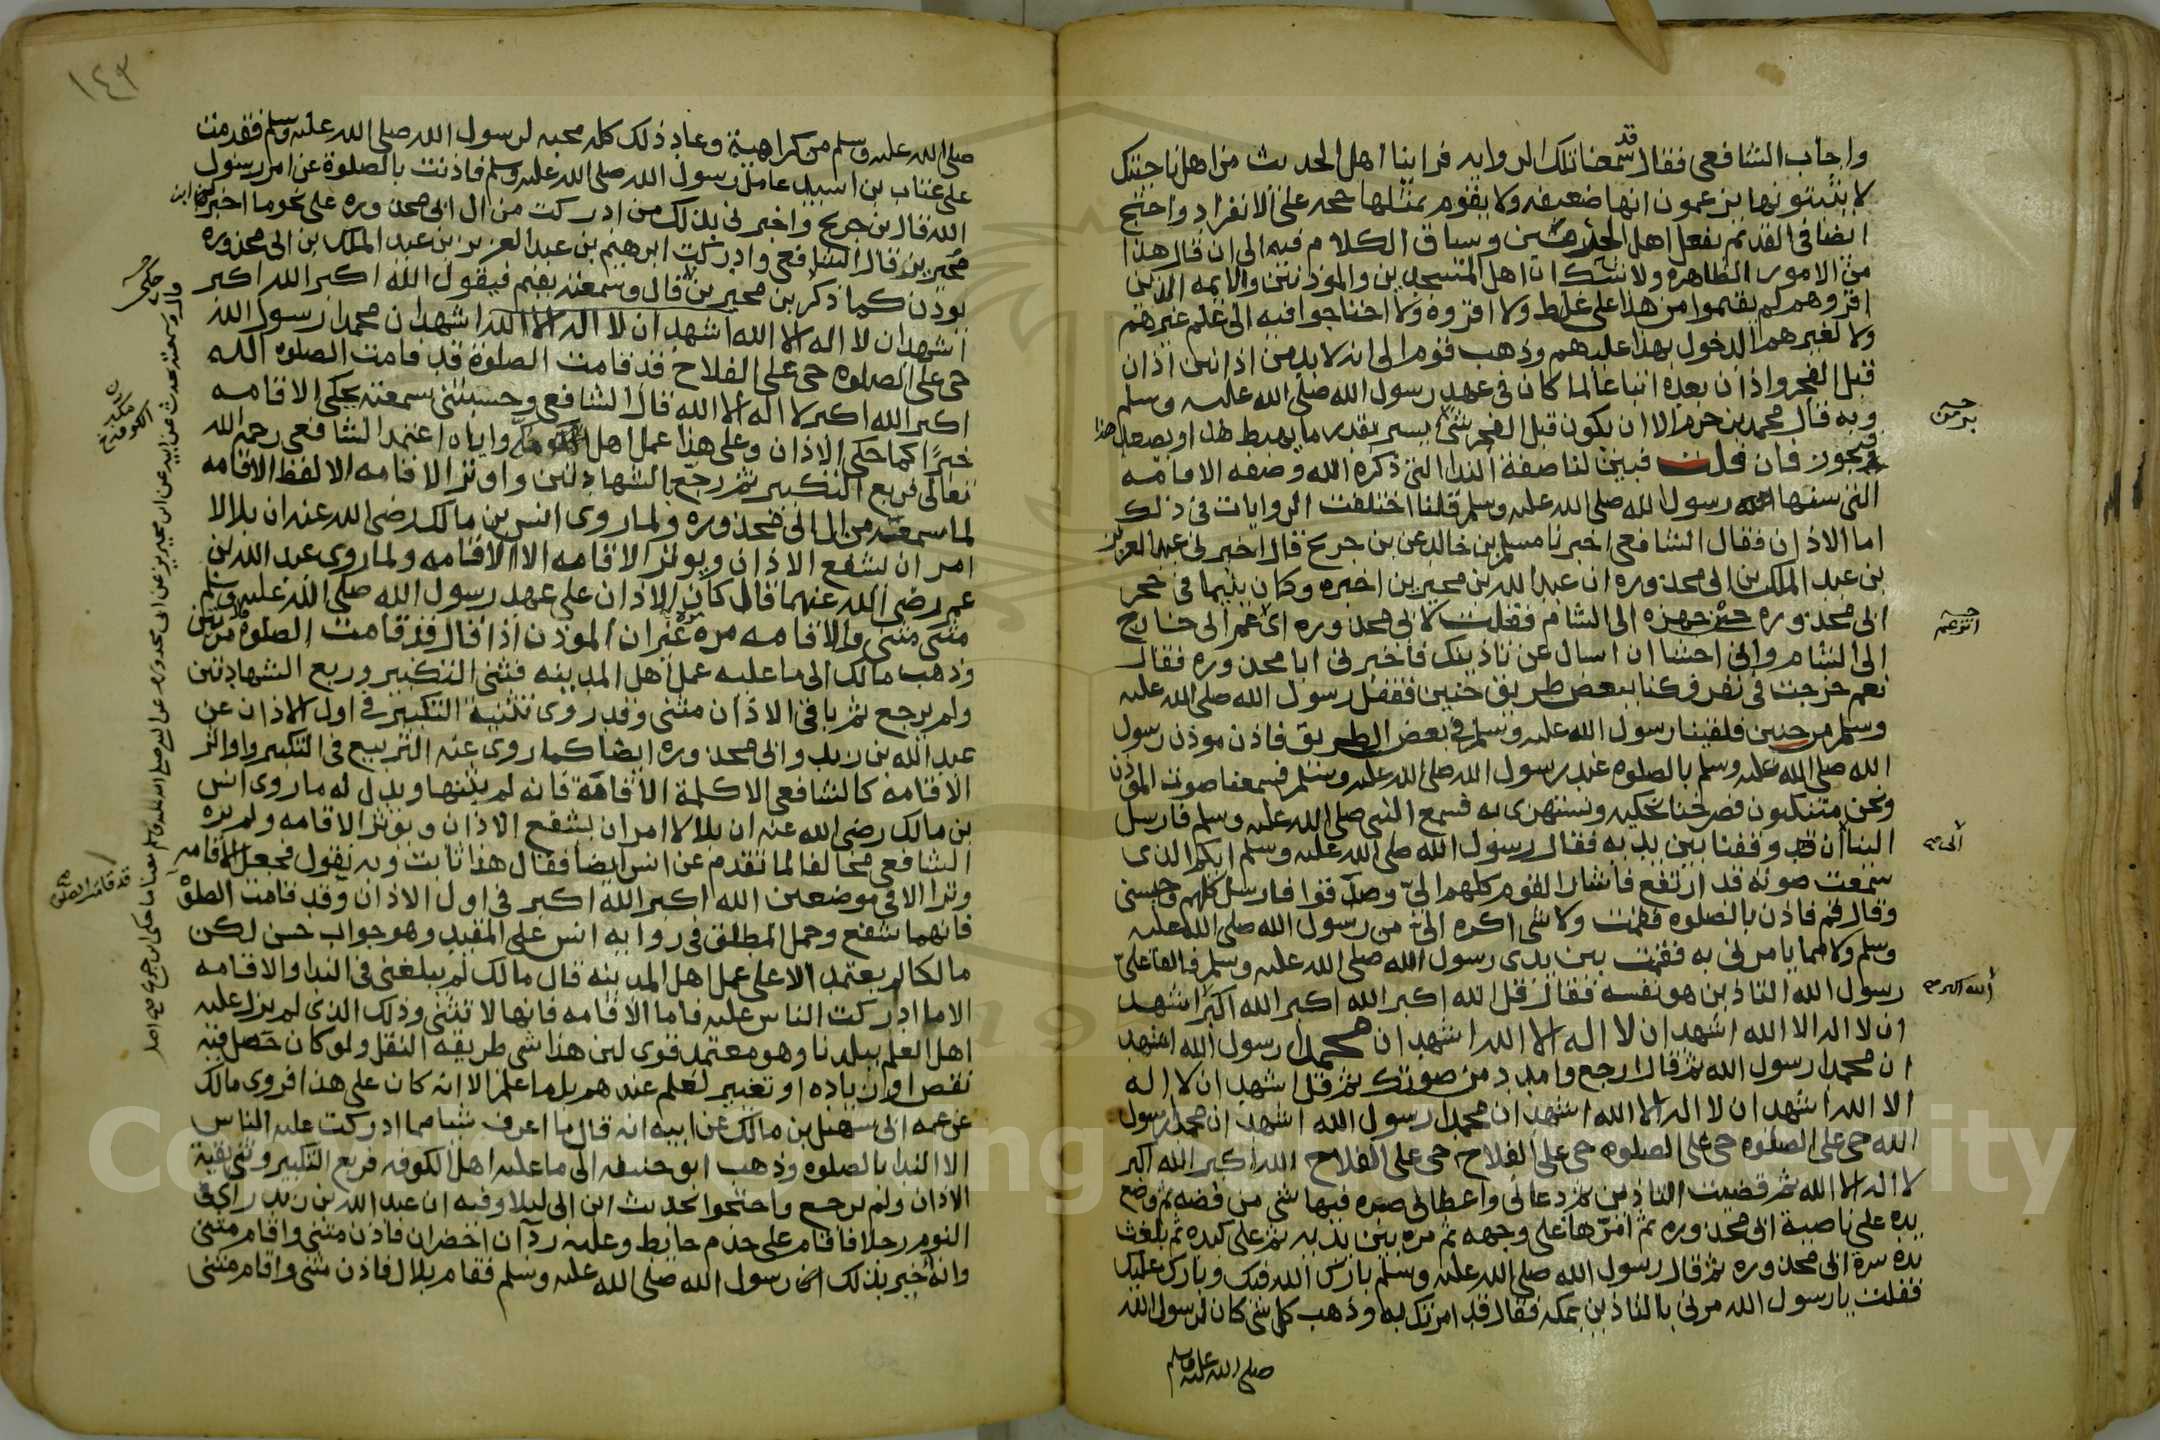 واجاب الشافعي فقال قد سمعنا تلك الرواية فراينا اهل الحديث من اهل ناحيتك
لا يثبتونها يزعمون انها ضعيفة ولا يقوم بمثلها حجة على الانفراد واحتج
ايضا في القديم بفعل اهل الحرمين وساق الكلام فيه الى ان قال هذا
من الامور الظاهرة ولا نشك ان اهل المسجدين والموذنين والايمه الذين
اقروهم لم يقيموا من هذا على غلط ولا اقروه ولا احتاجوا فيه الى علم غيرهم
ولا لغيرهم الدخول بهذا عليهم وذهب قوم الى انه لابد من اذانين اذان
قبل الفجر واذان بعده اتباعا لما كان في عهد رسول الله صلى الله عليه وسلم
وبه قال محمد بن حزم الا ان يكون قبل الفجر بشي يسير بقدر ما يهبط هذا ويصعد هذا
فيجوز فان قلت فبين لنا صفة الندا الذي ذكره الله وصفه الاقامه
التي سنها رسول الله صلى الله عليه وسلم قلنا اختلفت الروايات في ذلك
اما الاذان فقال الشافعي اخبرنا مسلم بن خالد عن بن جريج قال اخبرني عبد العزيز
بن عبد الملك بن ابي محذوره ان عبد الله بن محيريز اخبره وكان يتيما في حجر
ابي محذوره حين جهزه الى الشام فقلت لابي محذوره اي عم اني خارج
الى الشام واني اخشا ان اسال عن تاذينك فاخبرني ابا محذوره فقال
نعم خرجت في نفر فكنا ببعض طريق حنين فقفل رسول الله صلى الله عليه
وسلم من حنين فلقينا رسول الله عليه وسلم في بعض الطريق فاذن موذن رسول
الله صلى الله عليه وسلم بالصلوه عند رسول الله صلى الله عليه وسلم فسمعنا صوت الموذن
ونحن متنكبون فصرخنا نحكيه ونستهزي به فسمع النبي صلى الله عليه وسلم فارسل
الينا ان وقفنا بين يديه فقال رسول الله صلى الله عليه وسلم ايكم الذي
سمعت صوته قد ارتفع فاشار القوم كلهم الي وصدقوا فارسل كلهم وحبسني
وقال قم فاذن بالصلوه فقمت ولا شي اكره الي من رسول الله صلى الله عليه
وسلم ولا مما يامرني به فقمت بين يدي رسول الله صلى الله عليه وسلم فالقا علي
رسول الله التاذين هو نفسه فقال قل الله اكبر الله اكبر الله اكبر اشهد
ان لا اله الا الله اشهد ان لا اله الا الله اشهد ان محمدا رسول الله اشهد
ان محمدا رسول الله ثم قال ارجع وامدد من صوتك ثم قل اشهد ان لا اله
الا الله اشهد ان لا اله الا الله اشهد ان محمدا رسول الله اشهد ان محمدا رسول
الله حي على الصلوه حي على الصلوه حي على الفلاح حي على الفلاح الله اكبر الله اكبر
لا اله الا الله ثم قضيت التاذين ثم دعاني واعطاني صره فيها شي من فضه ثم وضع
يده على ناصية ابي محذوره ثم امرها على وجهه ثم مره بين يديه ثم على كبده ثم بلغت
يده سرة ابي محذوره ثم قال رسول الله صلى الله عليه وسلم بارك الله فيك وبارك عليك
فقلت يا رسول الله مرني بالتاذين بمكه فقال قد امرتك به وذهب كل شي كان لرسول الله
صلى الله عليه وسلم
الى
الله اكبر صح
١٤٣
صلى الله عليه وسلم من كراهية وعاد ذلك كله محبه لرسول الله صلى الله عليه وسلم فقدمت
على عتاب بن اسيد عامل رسول الله صلى الله عليه وسلم فاذنت بالصلوة عن امر رسول
الله قال بن جريج واخبرني بذلك من ادركت من ال ابي محذوره على نحو ما اخبرني ابن
محيريز قال الشافعي وادركت ابرهيم بن عبد العزيز بن عبد الملك بن ابي محذوره
يوذن كما ذكر بن محيريز قال وسمعته يقيم فيقول الله اكبر الله اكبر
اشهد ان لا اله الا الله اشهد ان لا اله الا الله اشهد ان محمدا رسول الله
حي على الصلوه حي على الفلاح قد قامت الصلوة قد قامت الصلوه الله
اكبر الله اكبر لا اله الا الله قال الشافعي وحسبتني سمعته يحكي الاقامه
خبرا كما حكى الاذان وعلى هذا عمل اهل مكة واياه اعتمد الشافعي رحمه الله
تعالى فربع التكبير ثم رجع بالشهادتين واوتر الاقامه الا لفظ الاقامه
لما سمعه من ال ابي محذوره ولما روى انس بن مالك رضي الله عنه ان بلالا
امر ان يشفع الاذان ويوتر الاقامه الا الاقامه ولما روى عبد الله بن
عمر رضي الله عنهما قال كان الاذان على عهد رسول الله صلى الله عليه وسلم
مثنى مثنى والاقامه مره مره غير ان الموذن اذا قال قد قامت الصلوة مرتين
وذهب مالك الى ما عليه عمل اهل المدينه فثنى التكبير وربع الشهادتين
ولم يرجع ثم باقي الاذان مثنى وقد روى تثنية التكبير في اول الاذان عن
عبد الله بن زيد وابي محذوره ايضا كما روى عنه التربيع في التكبير واوتر
الاقامه كالشافعي الا كلمة الاقامة فانه لم يثنها ويدل له ما روى انس
بن مالك رضي الله عنه ان بلالا امر ان يشفع الاذان ويوتر الاقامه ولم يره
الشافعي مخالفا لما تقدم عن انس ايضا فقال هذا ثابت وبه نقول فنجعل الاقامه
وترا الا في موضعين الله اكبر الله اكبر في اول الاذان وقد قامت الصلوة
فانهما شفع وحمل المطلق في رواية انس على المقيد وهو جواب حسن لكن
مالكا لم يعتمد الا على عمل اهل المدينه قال مالك لم يبلغني في الندا والاقامه
الا ما ادركت الناس عليه فاما الاقامه فانها لا تثنى وذلك الذي لم يزل عليه
اهل العلم ببلدنا وهو معتمد قوي لان هذا شي طريقه النقل ولو كان حصل فيه
نقص او زياده او تغيير لعلم عندهم بل ما علم الا انه كان على هذا فروى مالك
عن عمه ابي سهيل بن مالك عن ابيه انه قال ما اعرف شيا مما ادركت عليه الناس
الا الندا بالصلوه وذهب ابو حنيفه الى ما عليه اهل الكوفه فربع التكبير وثنى بقية
الاذان ولم يرجع واحتجوا بحديث ابن ابي ليلا وفيه ان عبد الله بن زيد راى في
النوم رجلا قام على جذم حايط وعليه ردآن اخضران فاذن مثنى واقام مثنى
وانه اخبر بذلك رسول الله صلى الله عليه وسلم فقام بلال فاذن مثنى واقام مثنى
قد قامت الصلوة